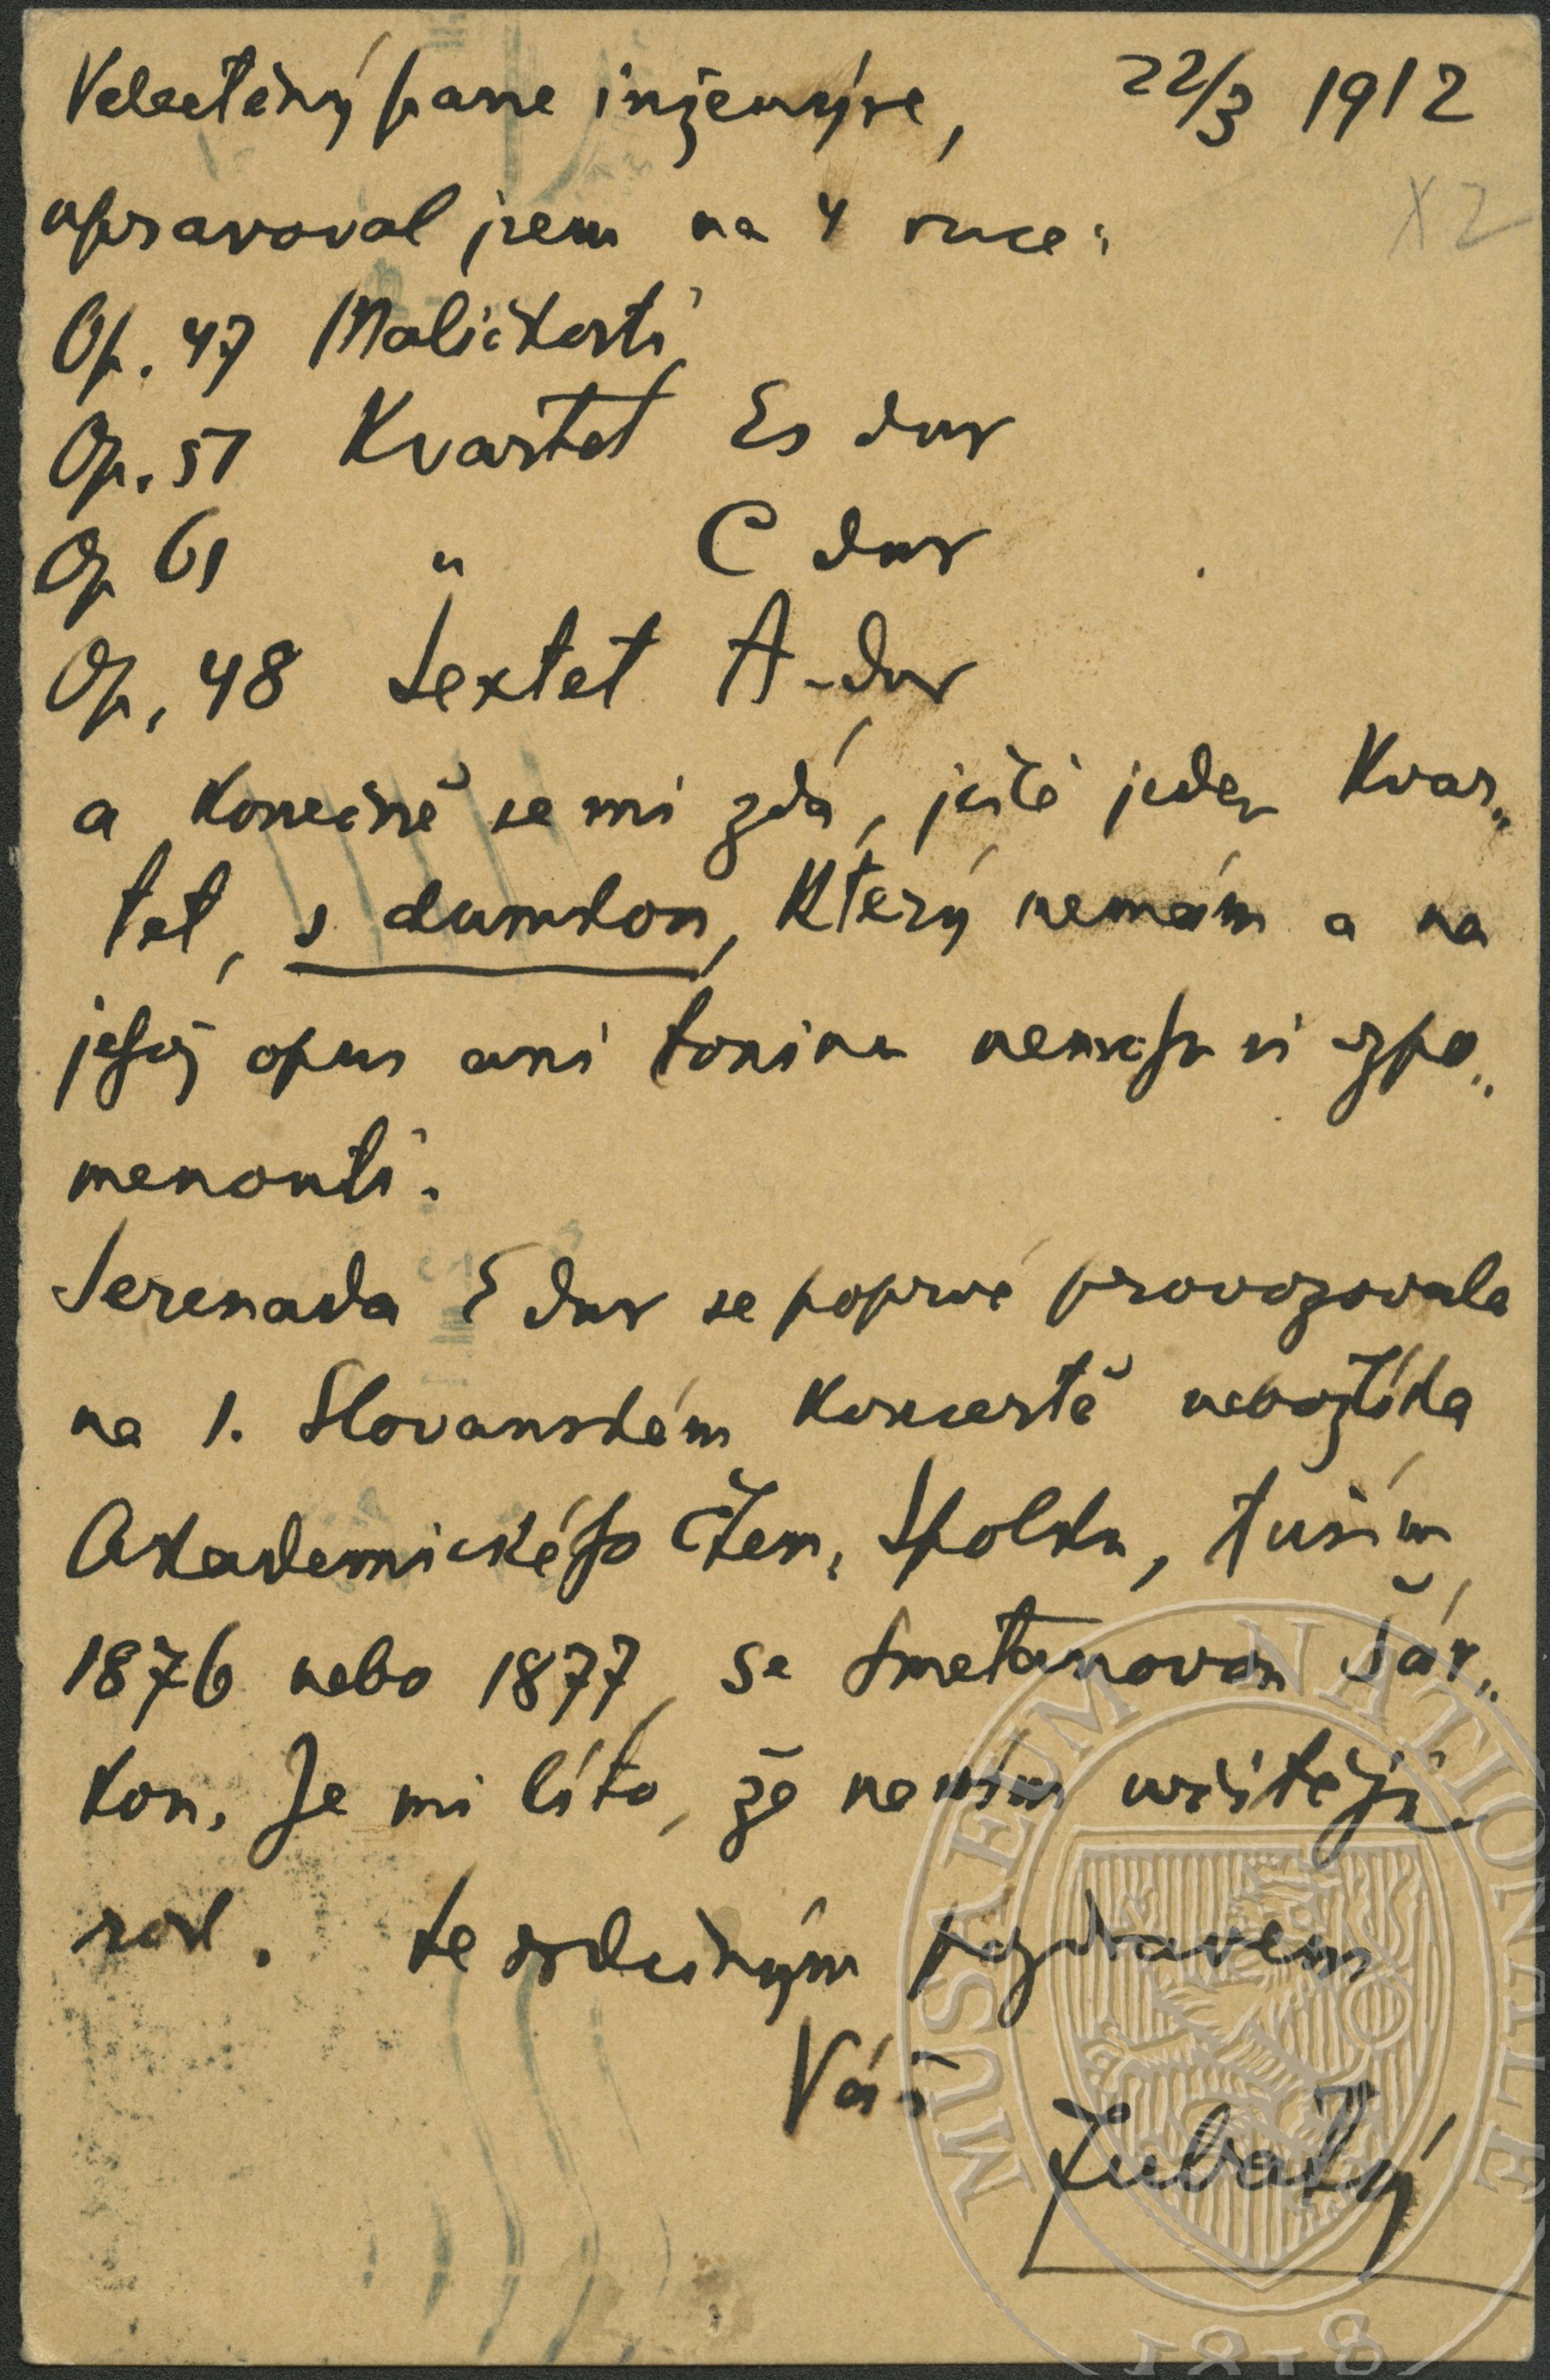 Velectěný pane inženýre, 22/3 1912
X2
upravoval jsem na 4 ruce:
Op. 47 Maličkosti,
Op. 51 Kvartet Es dur
Op 61 " C dur
Op. 48 Sextet A-dur,
a konečně se mi zdá, ještě jeden Kvar„
tet, s dumkou, který nemám a na
jehož opus ani toninu nemohu si zpo„
menouti.
Serenada E dur se poprvé provozovala
na 1. Slovanském koncertě nebožtíka
Akademického Čten. Spolku, tuším,
1876 nebo 1877, se Smetanovou Šár„
kou. Je mi líto, že nevím určitěji
rok. Se srdečným pozdravem
Váš
Zubatý
MUSAEUM NATIONALE
1818